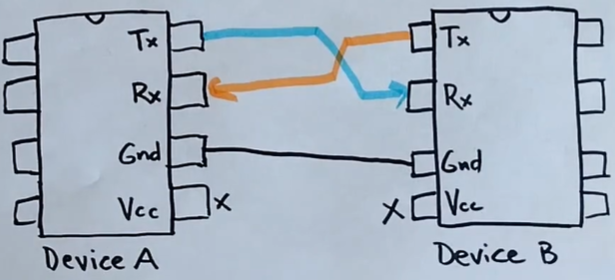 Tx
Rx
Gnd
Vcc
X
Device A
Tx
Rx
Gnd
X
Vcc
Device B